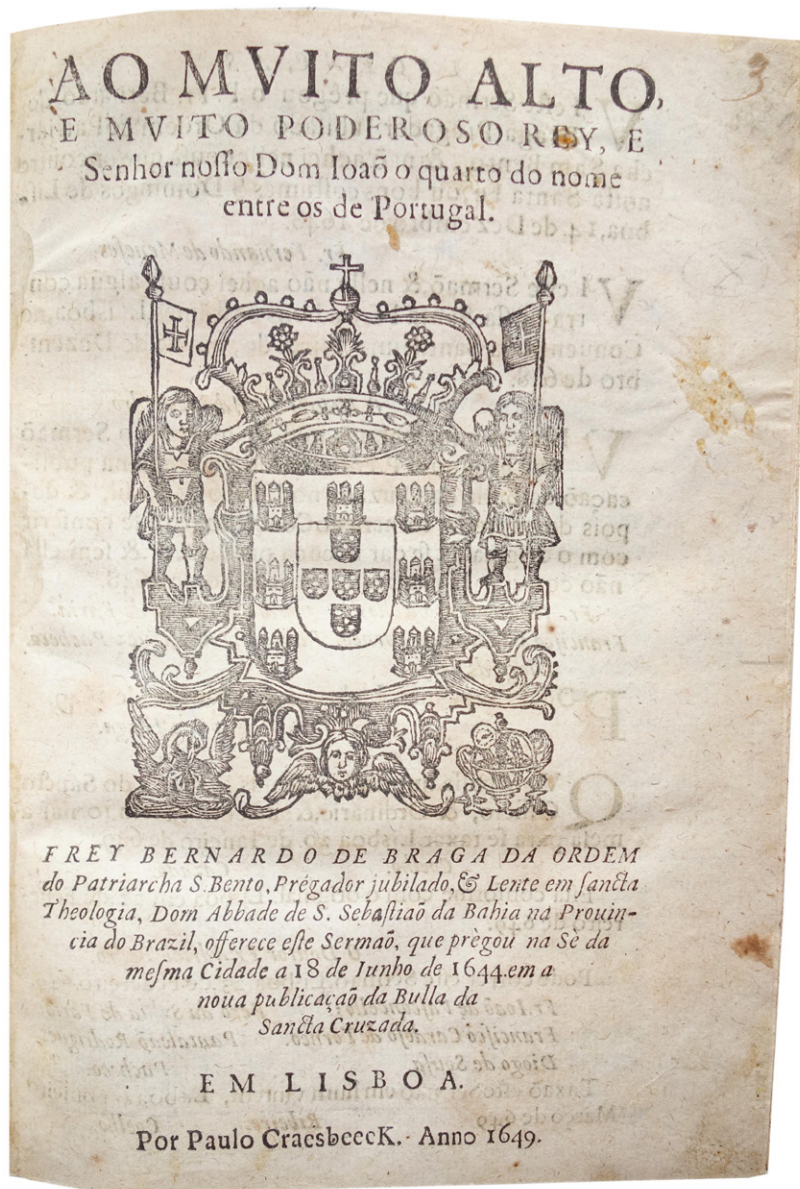 3
AO MVITO ALTO,
E MVITO PODEROSO REY, E
Senhor noſſo Dom Ioaõ o quarto do nome
entre os de Portugal.
FREY BERNARDO DE BRAGA DA ORDEM
do Patriarcha S. Bento, Prégador jubilado, & Lente em ſancta
Theologia, Dom Abbade de S. Sebaſtiaõ da Bahia na Prouin-
cia do Brazil, offerece eſte Sermaõ, que prègou na Sè da
meſma Cidade a 18 de Iunho de 1644. em a
noua publicaçaõ da Bulla da
Sancta Cruzada.
EM LISBOA.
Por Paulo CraesbeecK. Anno 1649.